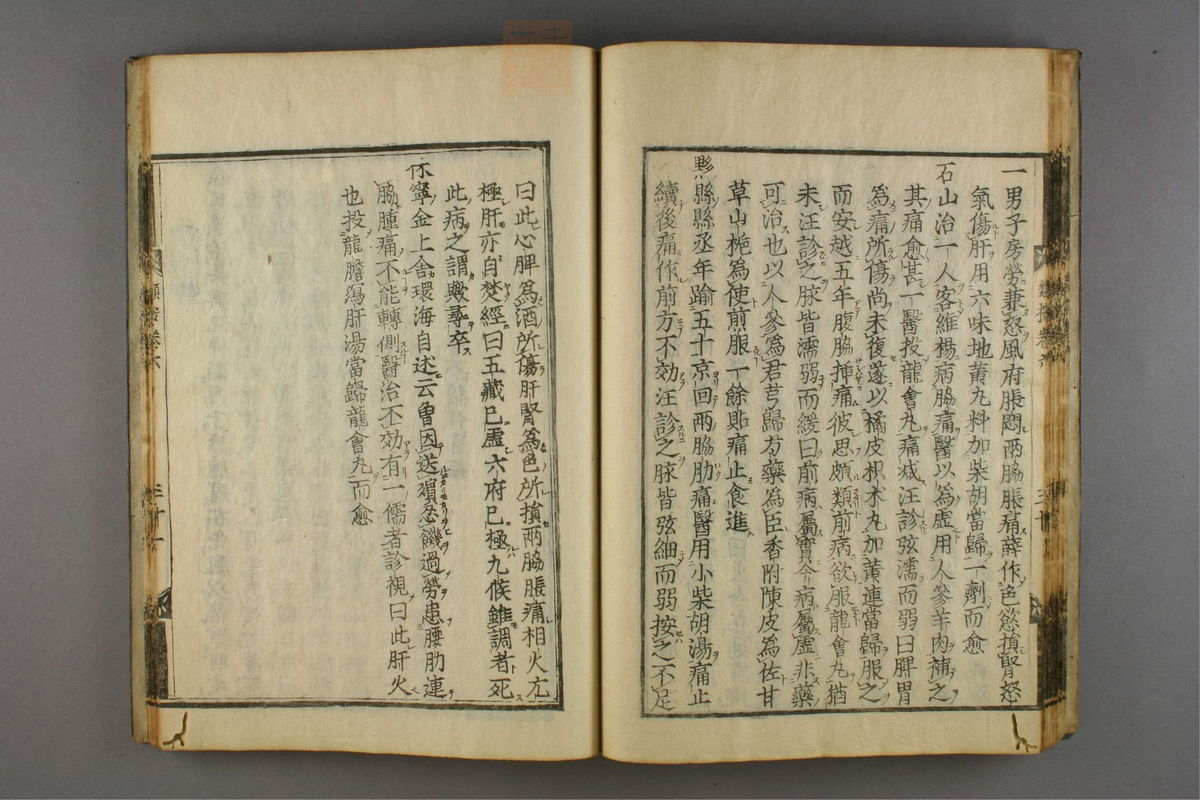 一男子房勞兼怒風府脹悶兩脇脹痛薛作色慾損腎怒
氣傷肝用六味地黄丸料加柴胡當歸一劑而愈
石山治一人客維楊病脇痛醫以為虛用人參羊肉補之
其痛愈甚一醫投龍會丸痛减汪診弦濡而弱曰脾胃
為痛所傷尚未復遂以橘皮枳术丸加黄連當歸服之
而安越五年腹脇挿痛彼思頗類前病欲服龍會丸猶
未汪診之脉皆濡弱而緩曰前病屬實今病屬虛非藥
可治也以人參為君芎歸芍藥為臣香附陳皮為佐甘
草山梔為使煎服一餘貼痛止食進
黟縣縣丞年踰五十京回兩脇肋痛醫用小柴胡湯痛止
續後痛作前方不効汪診之脉皆弦細而弱按之不足
曰此心脾為酒所傷肝腎為色所損兩脇脹痛相火亢
極肝亦自焚經曰五藏已虛六府已極九候雖調者死
此病之謂歟尋卒
休寧金上舍環海自述云曾因送殯忍饑過勞患腰肋連
脇腫痛不能轉側醫治不効有一儒者診視曰此肝火
也投龍膽瀉肝湯當歸龍會丸而愈
類案卷六